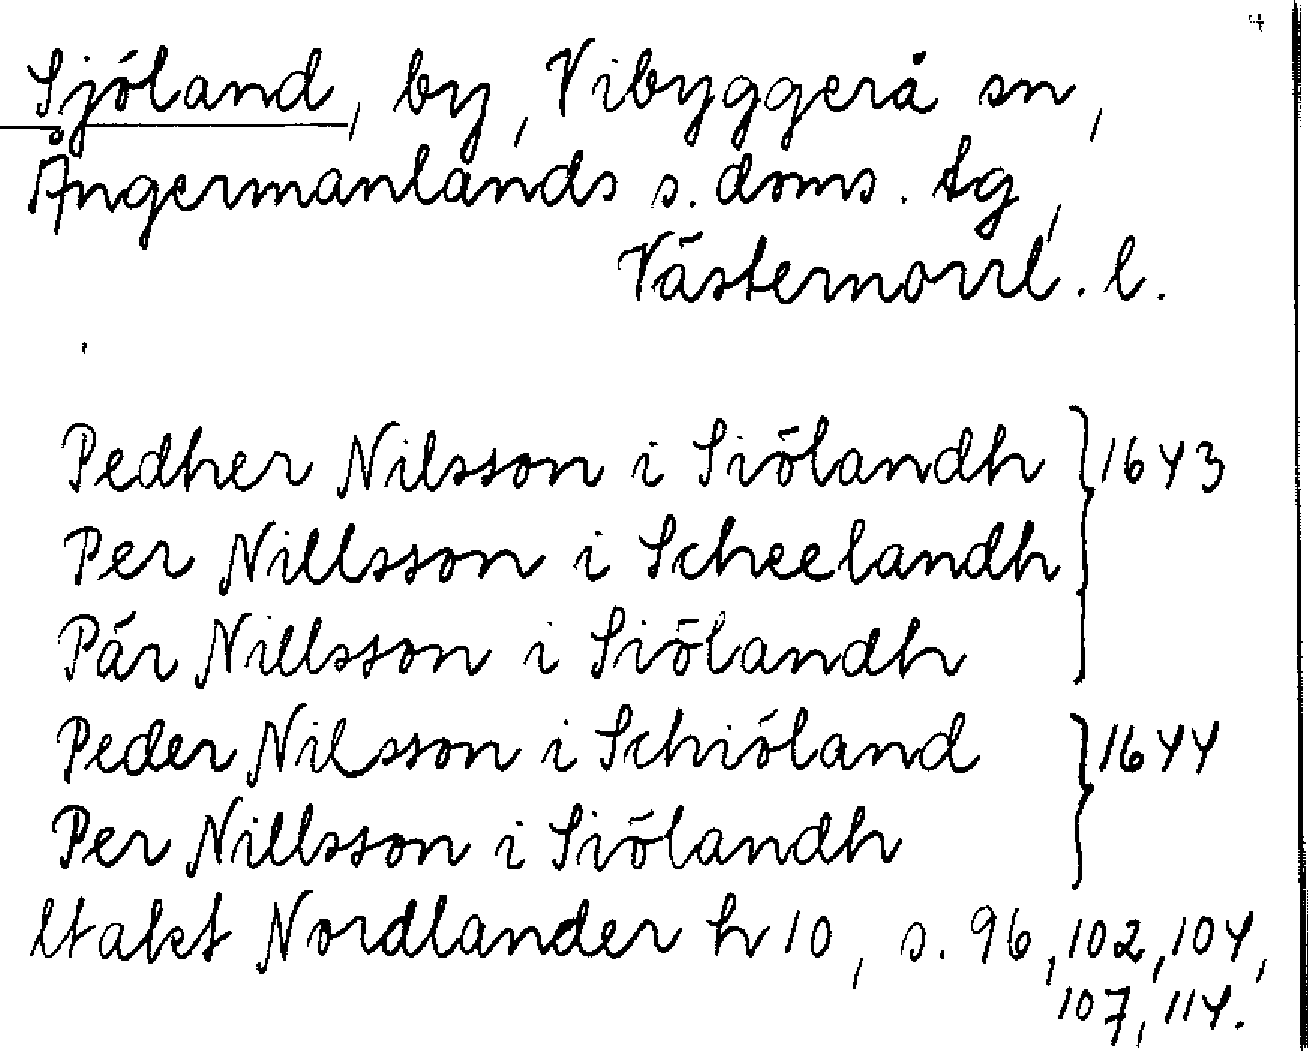 Sjöland, by, Vibyggerå sn,
Ångermanlands s. doms. tg,
Västernorrl. l.
Pedher Nilsson i Siölandh } 1643
Per Nillsson i Scheelandh
Pär Nillsson i Siölandh
Peder Nilsson i Schiöland } 1644
Per Nillsson i Siölandh
ltakt Nordlander h 10, s. 96, 102, 104,
107, 114.